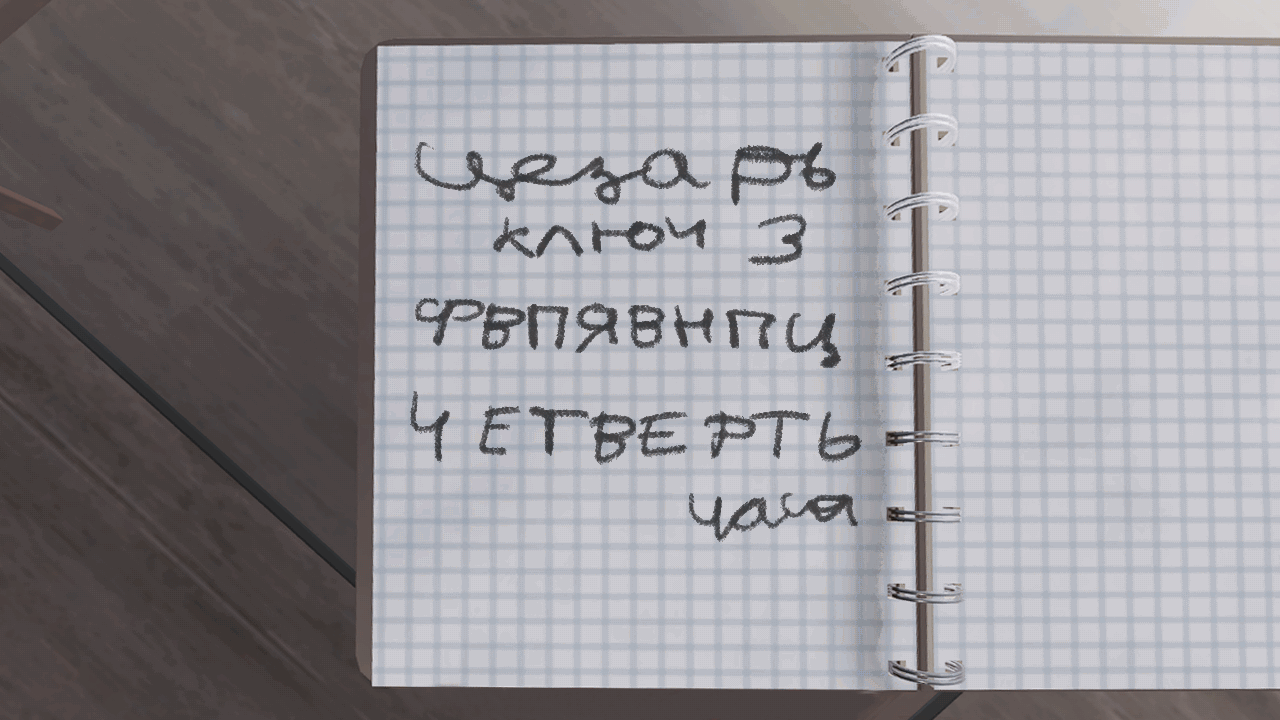 Цезарь
ключ 3
ФВПЯВНПЦ
ЧЕТВЕРТЬ
часа